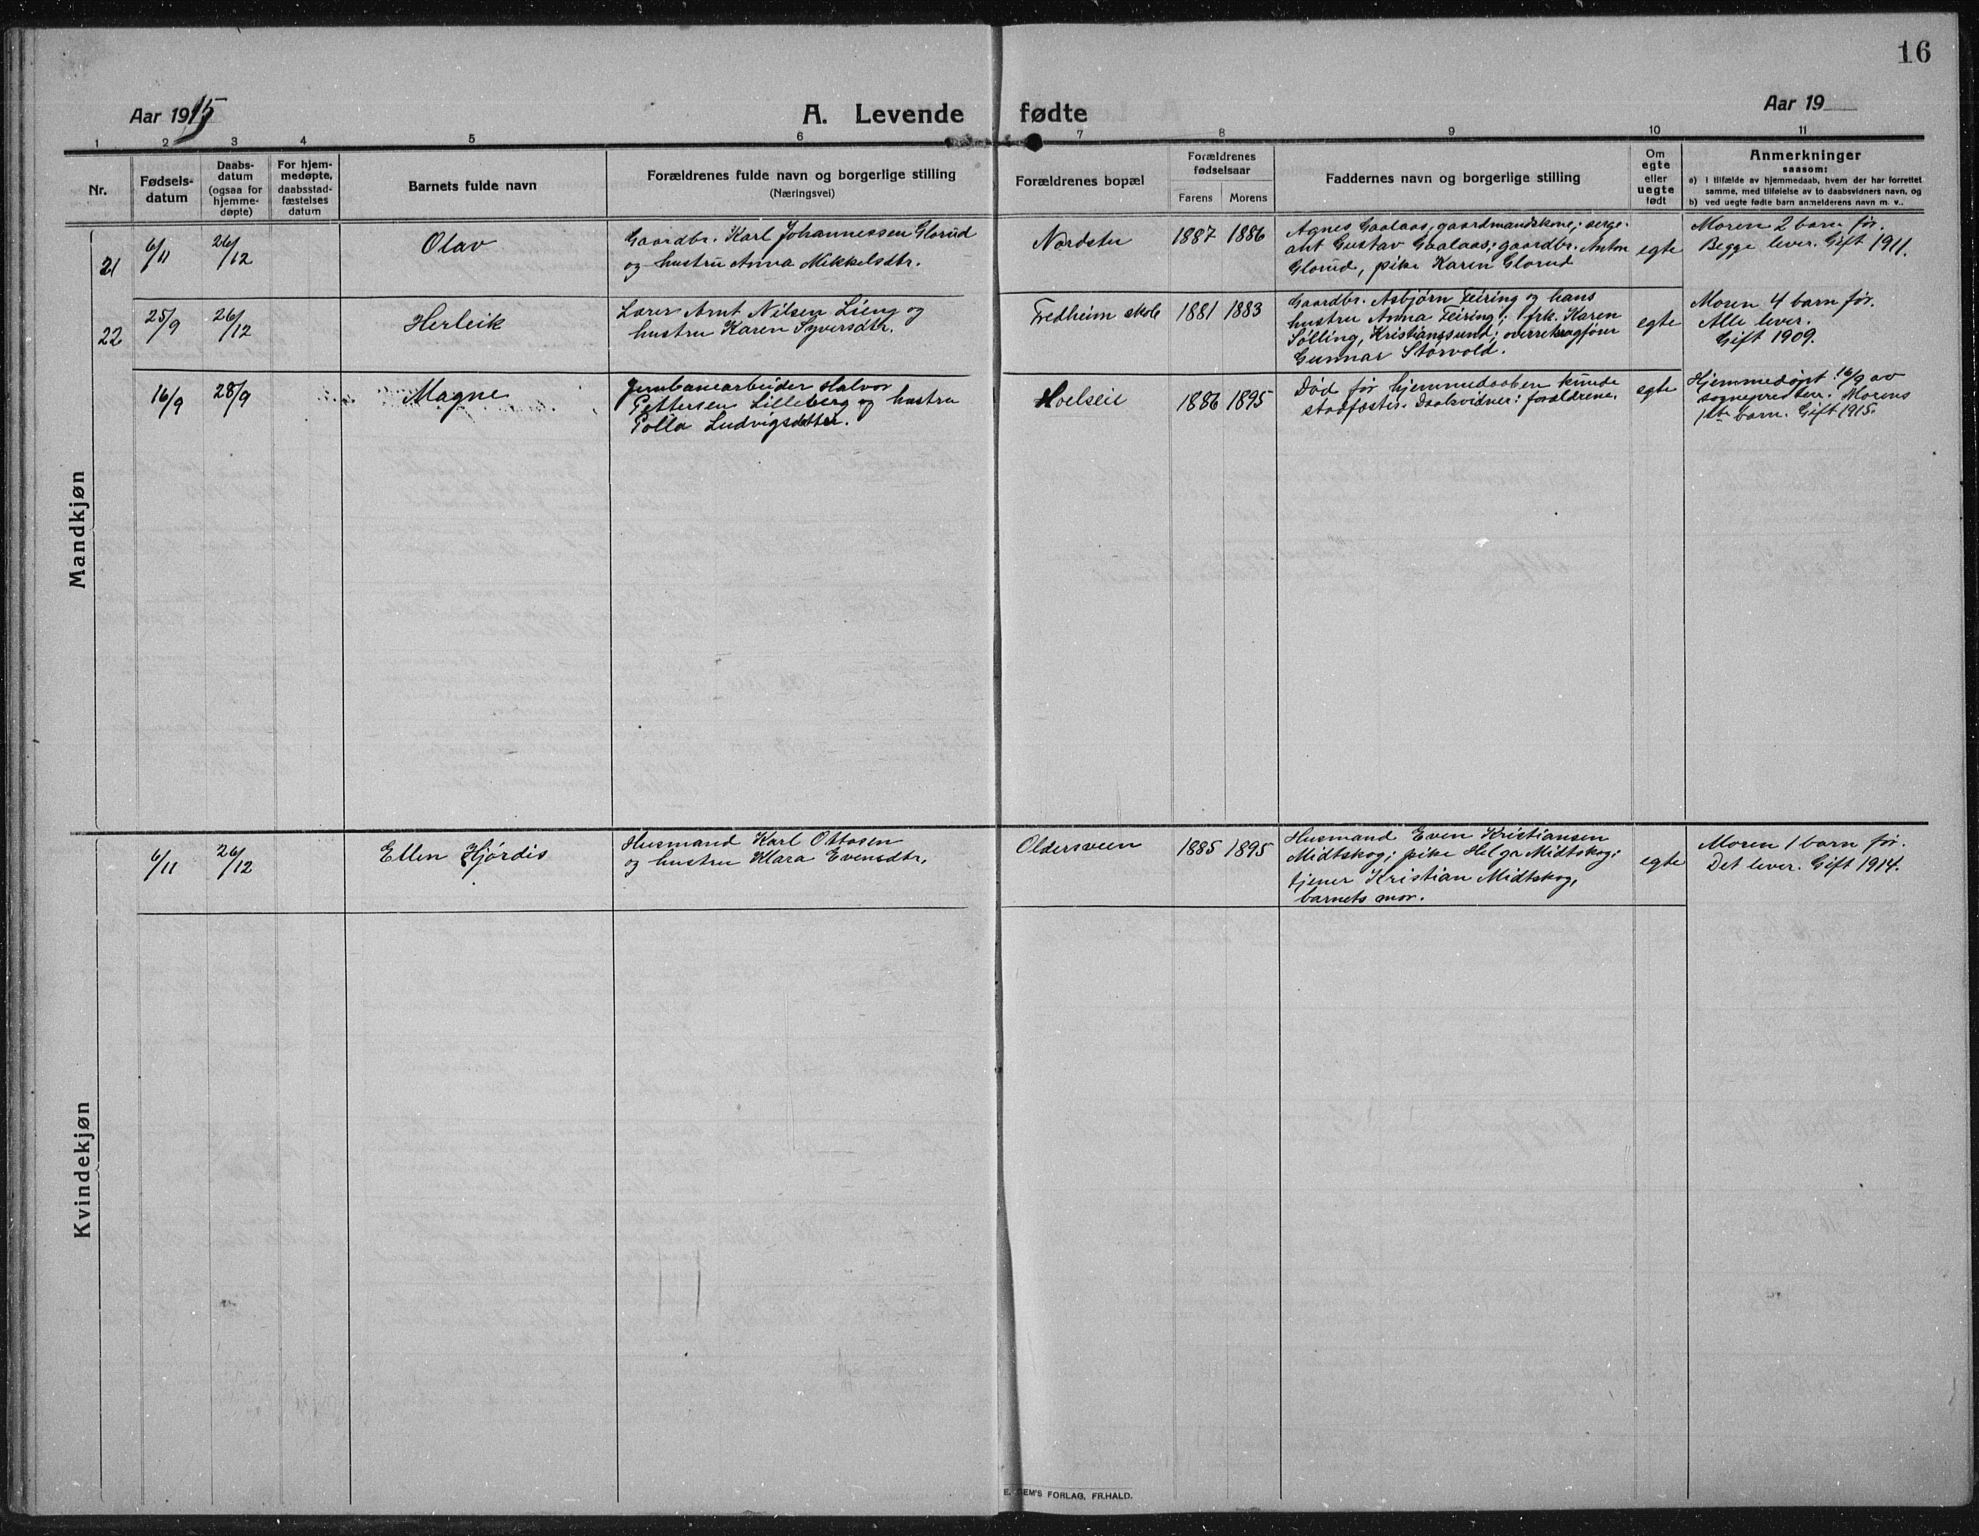 16
Aar 1915
A. Levende fødte
Aar 19
1 2 3 4 5 6 7 8 9 10 11
Nr.
Fødsels-
datum
Daabs-
datum
(ogsaa for
hjemme-
døpte)
For hjem-
medøpte,
daabsstad-
fæstelses
datum
Barnets fulde navn
Forældrenes fulde navn og borgerlige stilling
(Næringsvei)
Forældrenes bopæl
Forældrenes
fødselsaar
Farens Morens
Faddernes navn og borgerlige stilling
Om
egte
eller
uegte
født
Anmerkninger
saasom:
a) I tilfælde av hjemmedaab, hvem der har forrettet
samme, med tilføielse av to daabsvidners navn, og
b) ved uegte fødte barn anmelderens navn m. v..
Mandkjøn
21
6/11
26/12
Olav
Gaardbr. Karl Johannessen Glorud
og hustru Anna Mikkelsdtr.
Nordstu
1887 1886
Agnes Gaalaas, gaardmandskone; serge-
ant Gustav Gaalaas; gaardbr. Anton
Glorud, pike Karen Glorud
egte
Moren 2 barn før.
Begge lever. Gift 1911.
22
25/9
26/12
Herleik
Lærer Arnt Nilsen Lieng og
hustru Karen Syversdtr.
Fredheim skole
1881 1883
Gaardbr. Asbjørn Feiring og hans
hustru Anna Feiring; frk. Karen
Sølling, Kristianssund; overretssagfører
Gunnar Størvold.
egte
Moren 4 barn før.
Alle lever.
Gift 1909.
16/9
28/9
Magne
Jernbanearbeider Halvor
Pettersen Lilleberg og hustru
Polla Ludvigsdatter.
Hoelseie
1886 1895
Død før hjemmedaaben kunde
stadfæstes. Daabsvidner: forældrene.
egte
Hjemmedøpt 16/9 av
sognepresten. Morens
1ste barn. Gift 1915.
Kvindekjøn
6/11
26/12
Ellen Hjørdis
Husmand Karl Ottosen
og hustru Klara Evensdtr.
Oldersveen
1885 1895
Husmand Even Kristiansen
Midtskog; pike Helga Midtskog;
tjener Kristian Midtskog,
barnets mor.
egte
Moren 1 barn før.
Det lever. Gift 1914.
SEM'S FORLAG, FR.HALD.